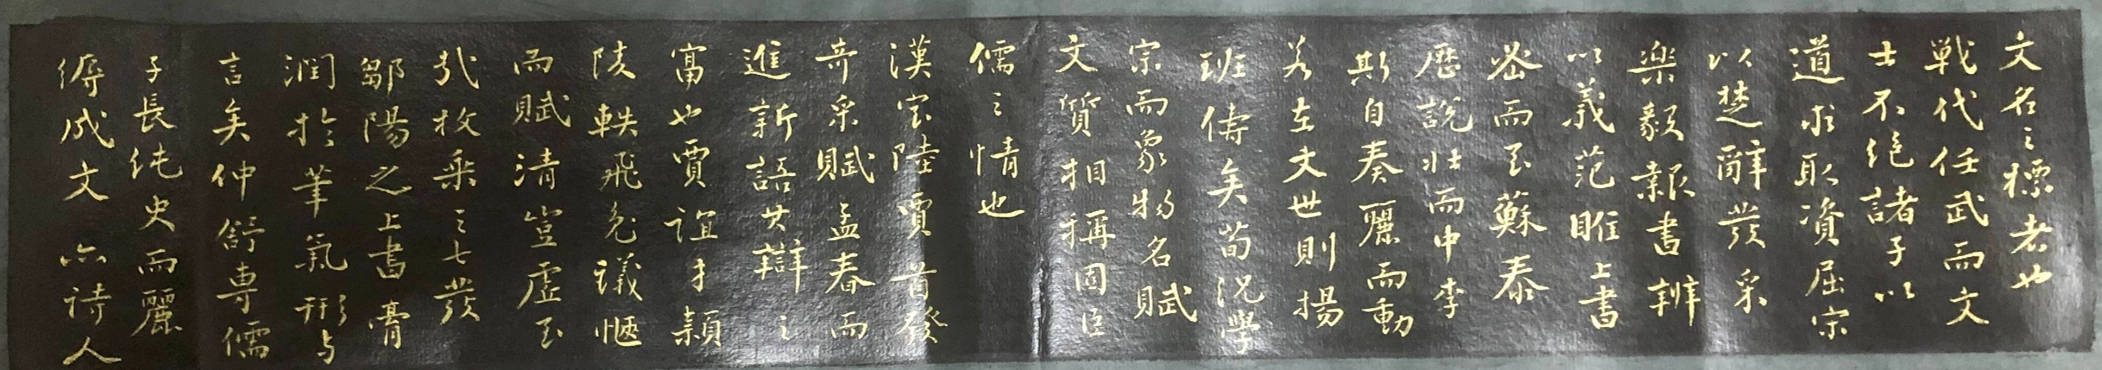 文名之標者也
戦代任武而文
士不絶諸子以
道術取資屈宋
以楚辭發采
楽毅報書辨
以義范雎上書
密而至蘇秦
歴説壮而中李
斯自奏麗而動
若在文世則揚
班儔矣荀況學
宗而象物名賦
文質相稱固巨
儒之情也
漢室陸賈首發
奇采賦孟春而
進新語其辯之
富也賈誼才穎
陵軼飛兔議愜
而賦清豈虚至
哉枚乗之七發
鄒陽之上書膏
潤於筆氣形与
言矣仲舒専儒
子長純史而麗
縟成文亦詩人